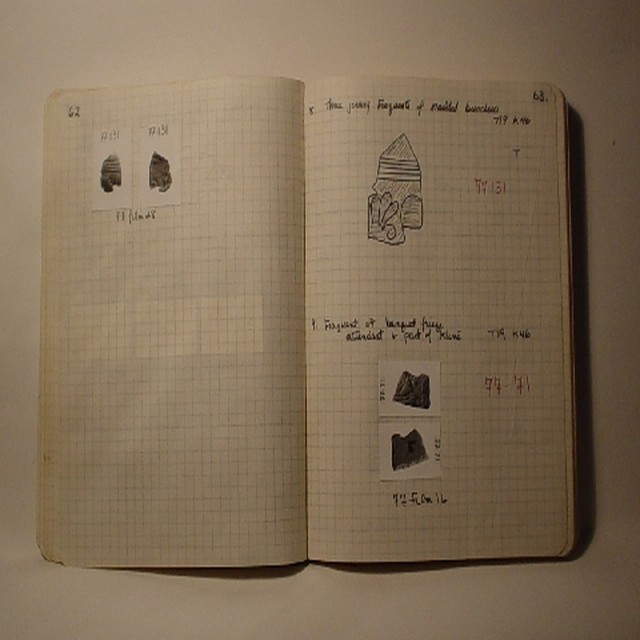 62
77.131 77.131
77 film
63.
8. Three joining fragments of
T19 K46
T
77.131
9. Fragment of banquet frieze
attendant & part of kliné T19, K46
77-71
77.71
77.71
77 film 16